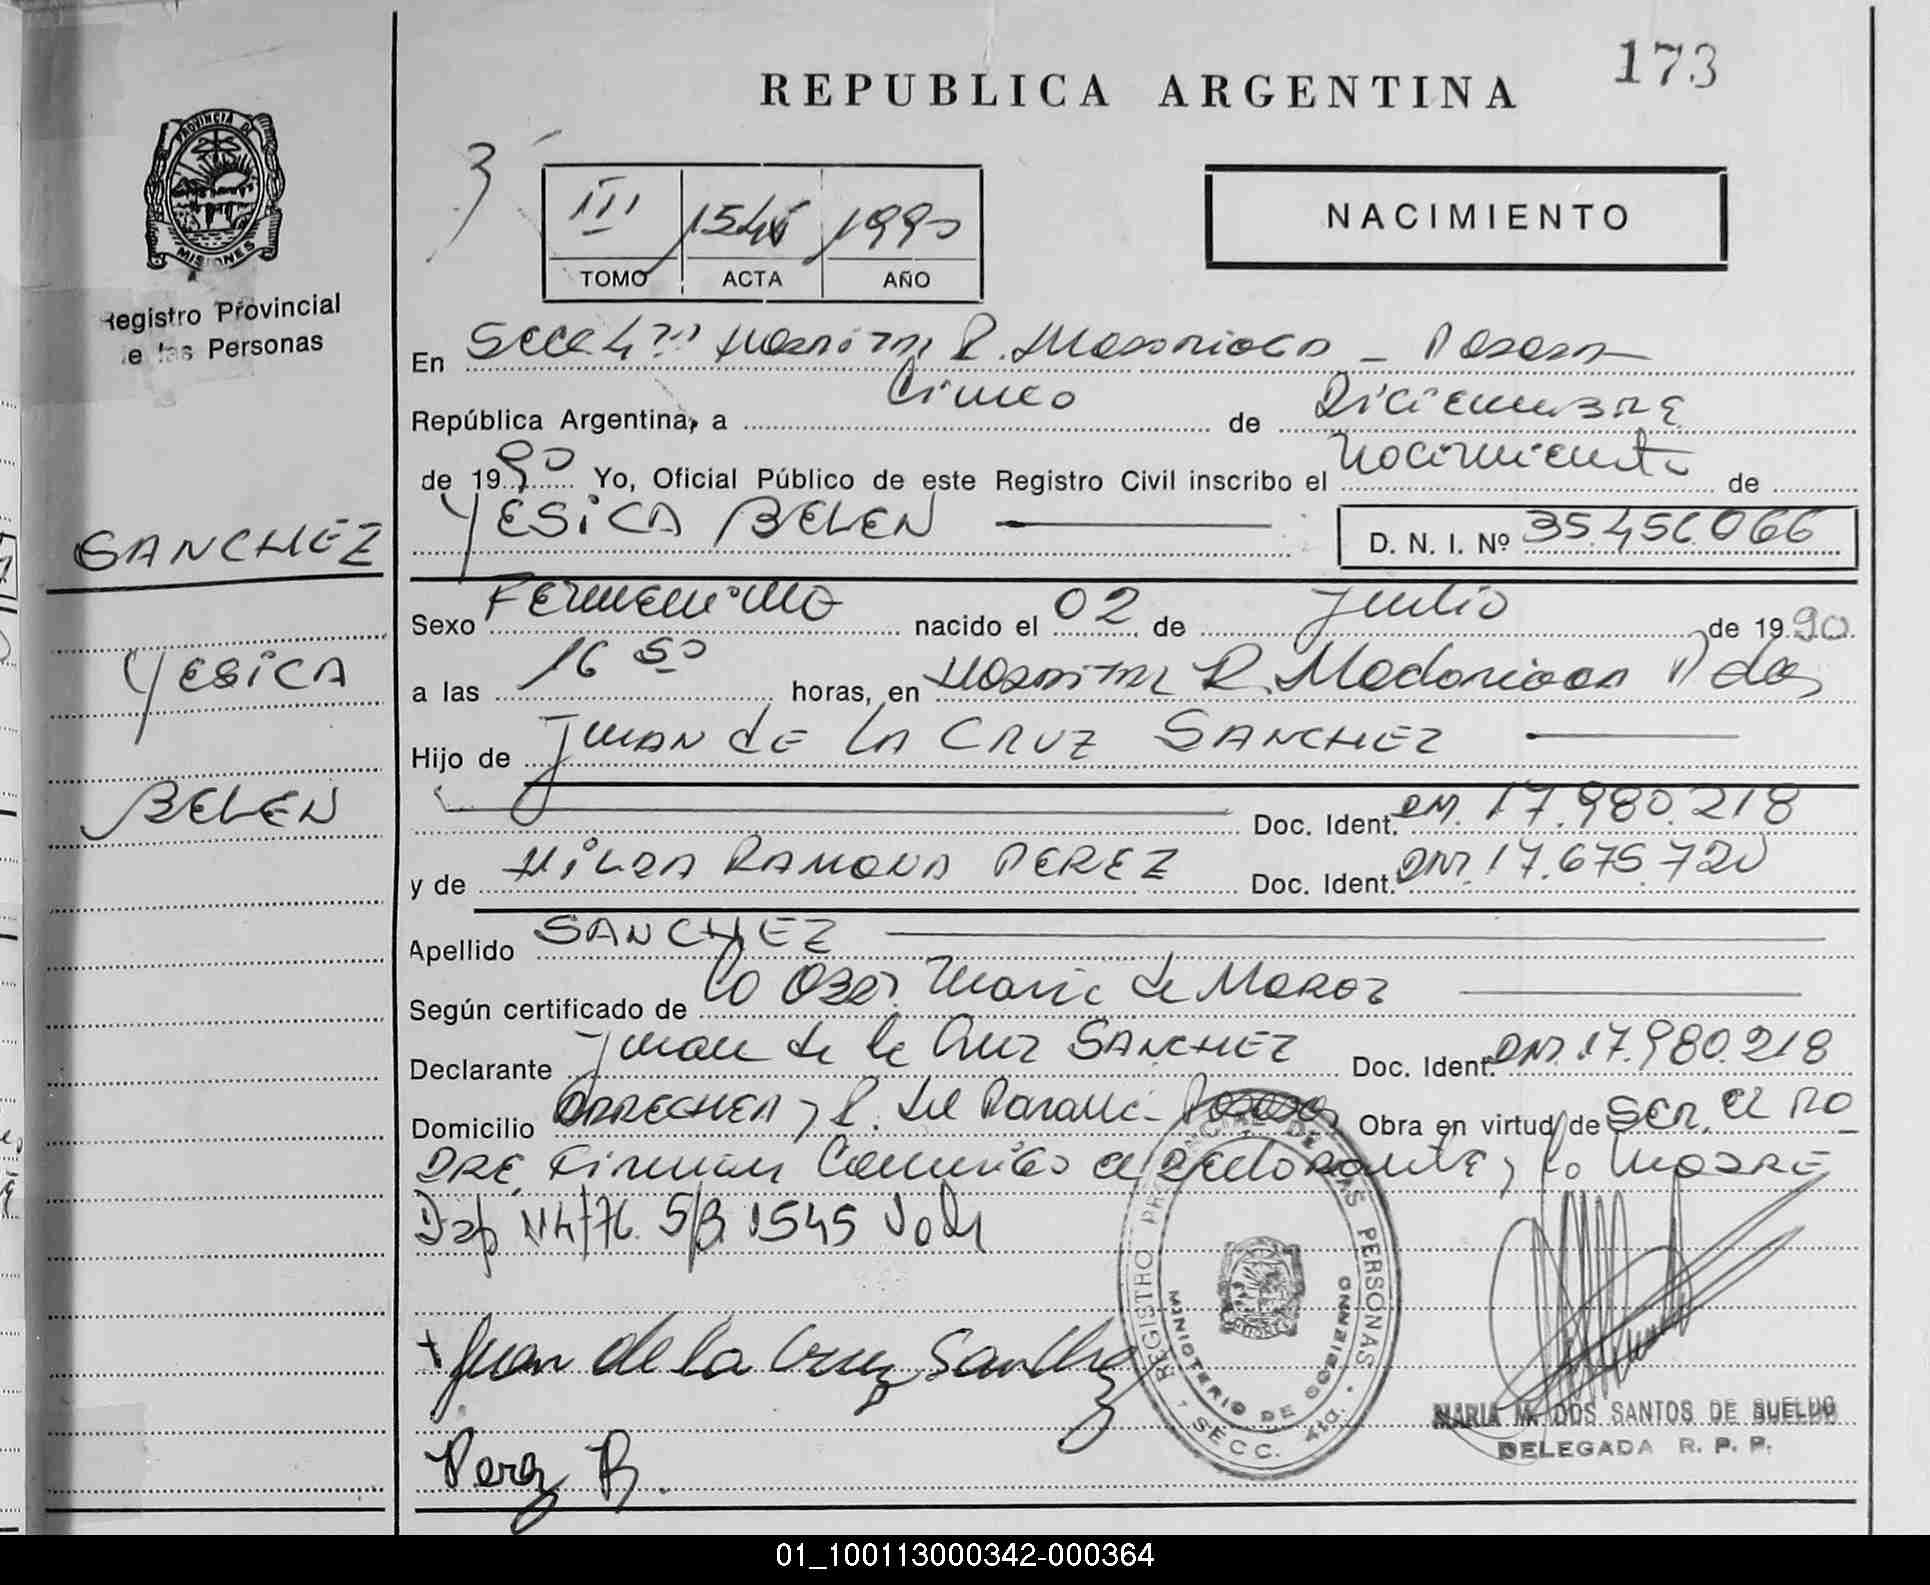 173
REPUBLICA ARGENTINA
PROVINCIA DE
MISIONES
Registro Provincial
de las Personas
3
III 1545 1990
TOMO ACTA AÑO
NACIMIENTO
En Secc 4ta Hospital R. Madariaga - Posadas
República Argentina, a Cinco de Diciembre
de 1990 Yo, Oficial Público de este Registro Civil inscribo el Nacimiento de
YESICA BELEN D. N. I. Nº 35.456.066
SANCHEZ
YESICA
BELEN
Sexo Femenino nacido el 02 de Julio de 1990.
a las 16 50 horas, en Hospital R. Madariaga Pdas
Hijo de JUAN de LA CRUZ SANCHEZ
Doc. Ident. DNI. 17.980.218
y de HILDA RAMONA PEREZ Doc. Ident. DNI. 17.675.720
Apellido SANCHEZ
Según certificado de la Obst. Maria de
Declarante Juan de la Cruz SANCHEZ Doc. Ident. DNI. 17.980.218
Domicilio y R. del Parana - Posadas Obra en virtud de Ser. el PA
DRE. Firman Conmigo el declarante y la MADRE
1545
Juan de la Cruz Sanchez
Perez R.
REGISTRO PROVINCIAL DE LAS PERSONAS
MINISTERIO DE GOBIERNO
SECC. 4ta.
MARIA M. DOS SANTOS DE SUELDO
DELEGADA R. P. P.
01_100113000342-000364